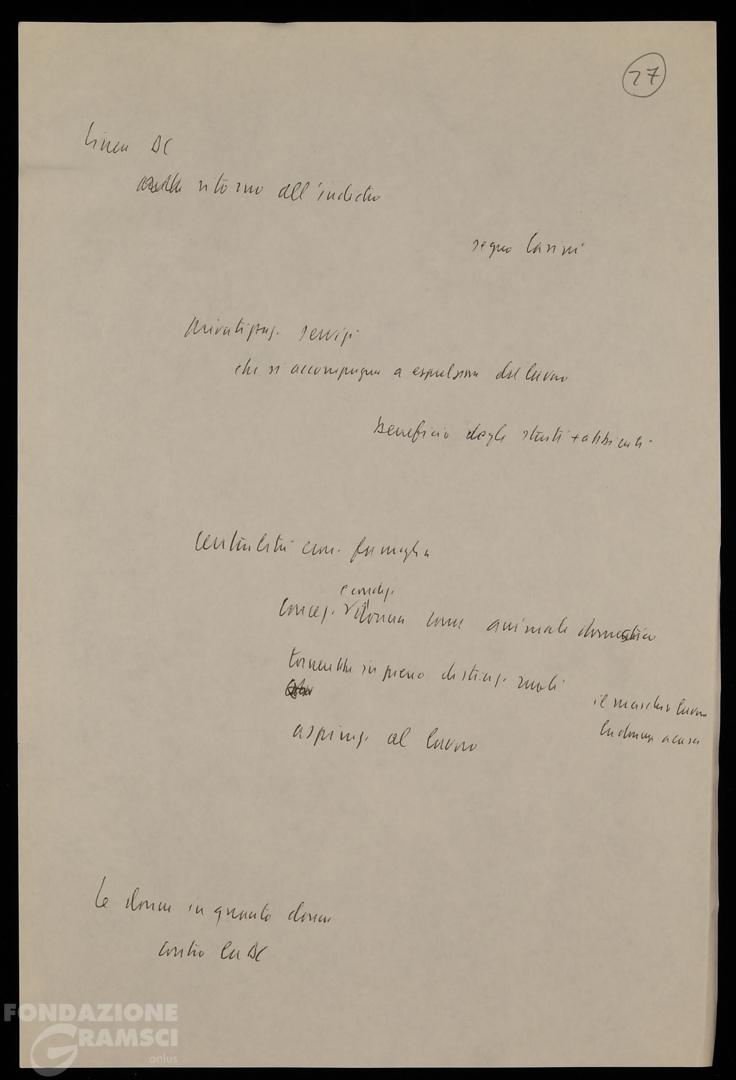 27
linea DC
ritorno all'indietro
segno Casini
privatizzaz. servizi
che si accompagna a espulsione dal lavoro
beneficio degli strati + abbienti
centralità econ. famiglia
e condiz.
concez. donna come animale domestico
tornerebbe in pieno distinz. ruoli
il maschio lavoro
la donna a casa
aspiraz. al lavoro
le donne in quanto donne
contro la DC
FONDAZIONE
GRAMSCI
onlus